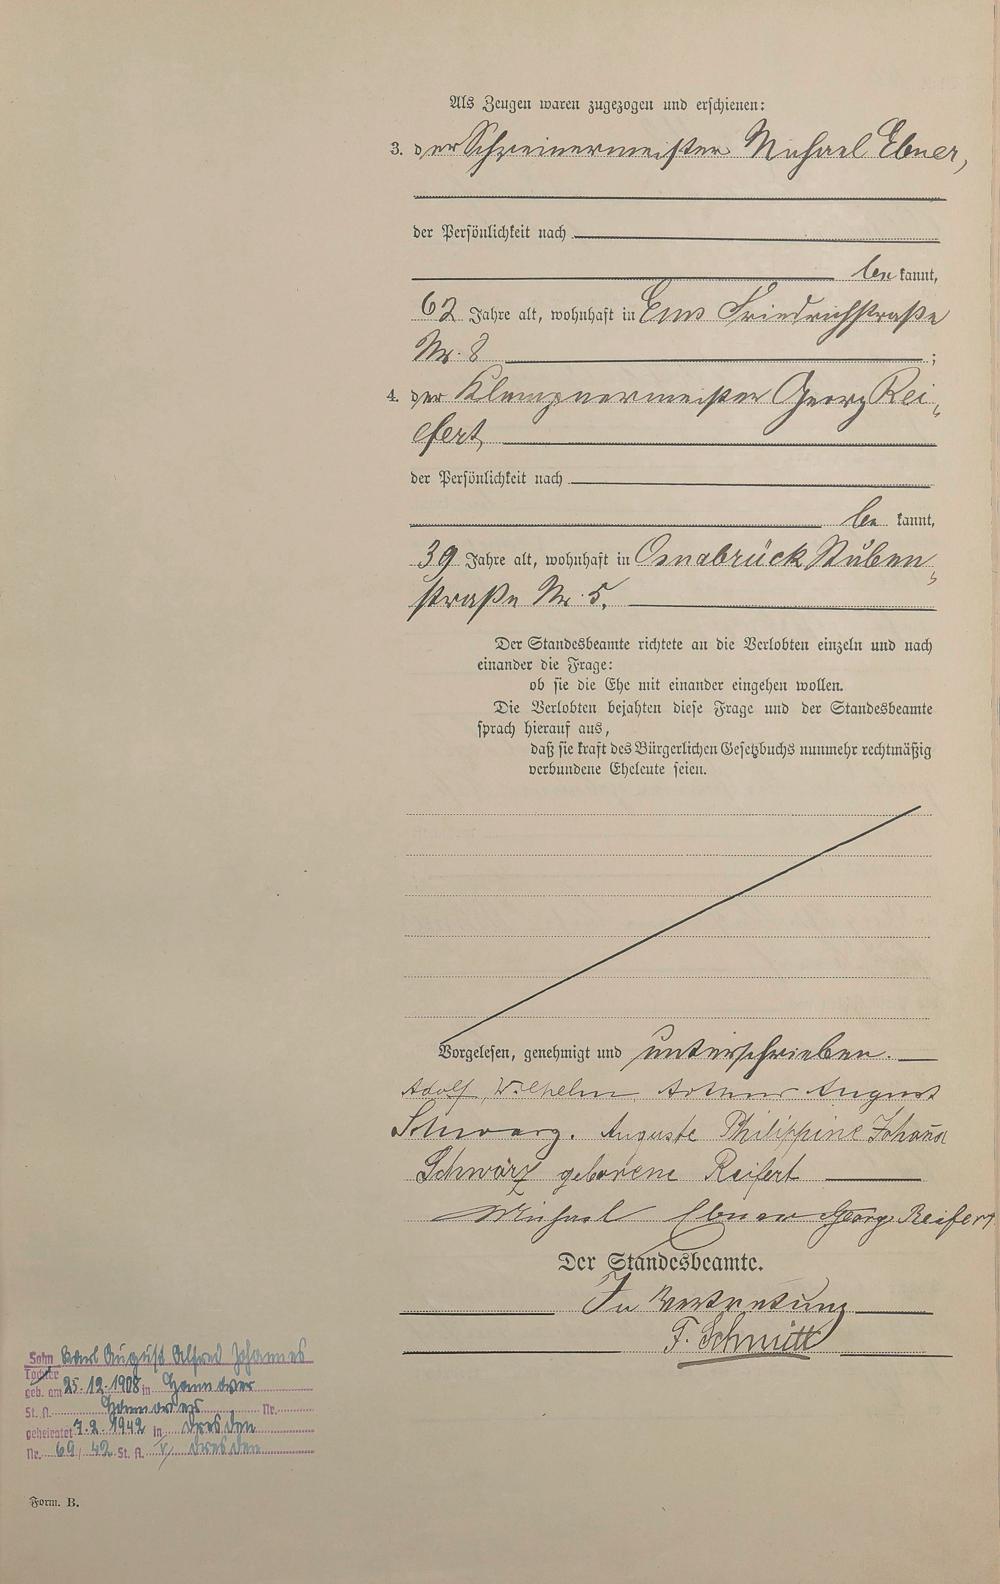 Als Zeugen waren zugezogen und erschienen:
3. der Schreinermeister Michael Ebner,
der Persönlichkeit nach
be kannt,
62 Jahre alt, wohnhaft in Ems Friedrichstraße
Nr. 8 ;
4. der Klempnermeister Georg Rei-
fert,
der Persönlichkeit nach
be kannt,
39 Jahre alt, wohnhaft in Osnabrück Stüben-
straße Nr. 5.
Der Standesbeamte richtete an die Verlobten einzeln und nach
einander die Frage:
ob sie die Ehe mit einander eingehen wollen.
Die Verlobten bejahten diese Frage und der Standesbeamte
sprach hierauf aus,
daß sie kraft des Bürgerlichen Gesetzbuchs nunmehr rechtmäßig
verbundene Eheleute seien.
Vorgelesen, genehmigt und unterschrieben.
Adolf, Wilhelm, Arthur August
Schwarz. Auguste Philippine Johana
Schwarz geborene Reifert
Michael Ebner Georg Reifert
Der Standesbeamte.
In Vertretung
F. Schmitt
Sohn Karl August Alfred Johannes
Tochter
geb. am 25.12.1908 in Hannover
St. A. Hannover Nr.
geheiratet 7.2.1942 in Dresden
Nr. 69/42 St. A. V, Dresden
Form. B.